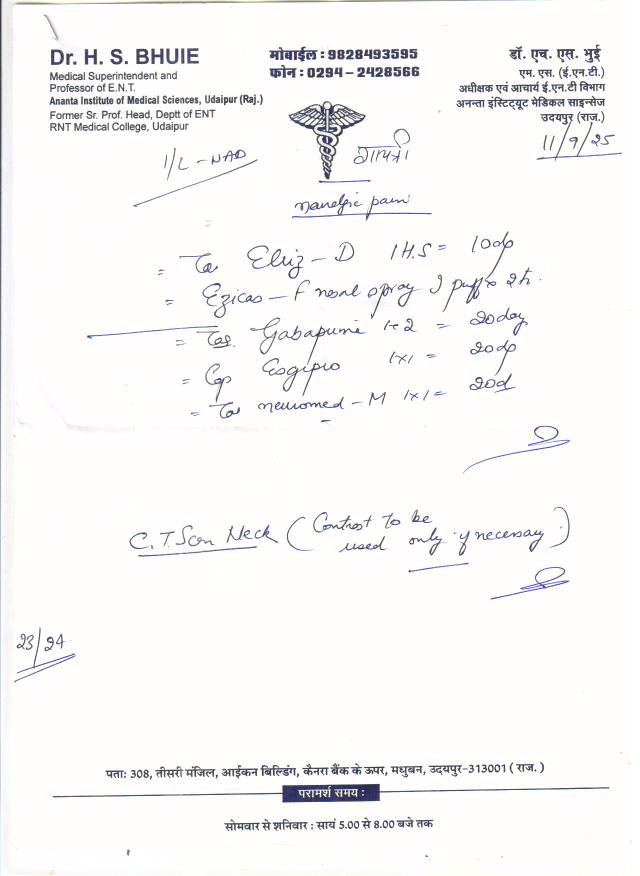 Dr. H. S. BHUIE
Medical Superintendent and
Professor of E.N.T.
Ananta Institute of Medical Sciences, Udaipur (Raj.)
Former Sr. Prof. Head, Deptt of ENT
RNT Medical College, Udaipur
मोबाईल : 9828493595
फोन : 0294 – 2428566
डॉ. एच. एस. भुई
एम. एस. (ई.एन.टी.)
अधीक्षक एवं आचार्य ई.एन.टी विभाग
अनन्ता इंस्टिट्यूट मेडिकल साइन्सेज
उदयपुर (राज.)
11/9/25
I/L - NAD
गायत्री
pain
= D 1 H.S =
= nasal spray
= = 20 day
= Cap 1x1 =
= - M 1x1 = 20d
C.T. Scan Neck (Contrast to be
used only if necessary)
23/24
पता: 308, तीसरी मंजिल, आईकन बिल्डिंग, कैनरा बैंक के ऊपर, मधुबन, उदयपुर-313001 ( राज. )
परामर्श समय :
सोमवार से शनिवार : सायं 5.00 से 8.00 बजे तक